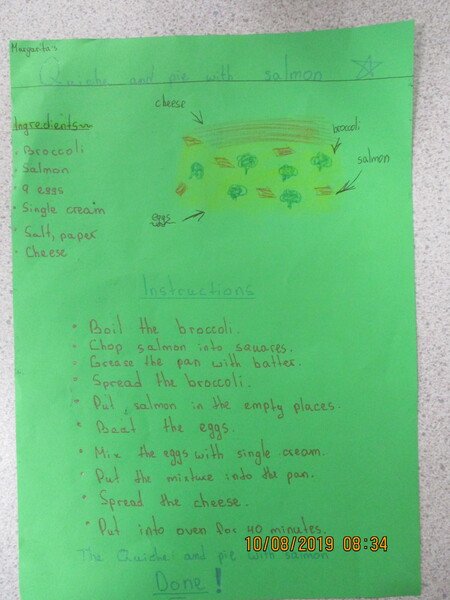 Margarita's
Quiche and pie with salmon
cheese
Ingredients
broccoli
• Broccoli
• Salmon
salmon
• 9 eggs
• Single cream
eggs
• Salt, paper
• Cheese
Instructions
• Boil the broccoli.
• Chop salmon into squares.
• Grease the pan with batter.
• Spread the broccoli.
• Put salmon in the empty places.
• Beat the eggs.
• Mix the eggs with single cream.
• Put the mixture into the pan.
• Spread the cheese.
• Put into oven for 40 minutes.
10/08/2019 08:34
The Quiche and pie with salmon
Done!